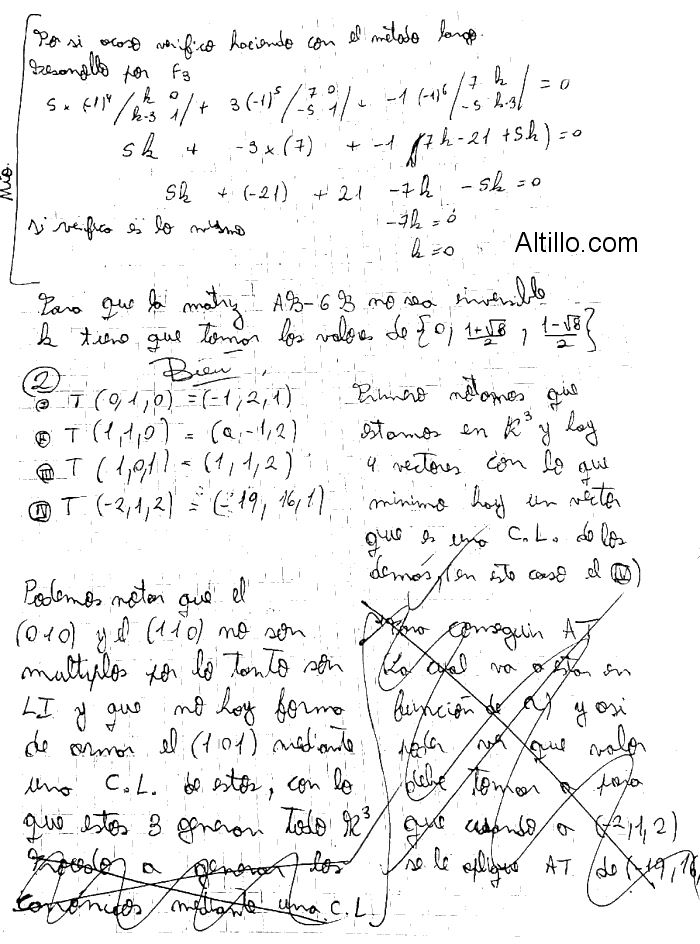 Por si acaso verifico haciendo con el método largo.
Desarrollo por F3
5 × (-1)^4 / k 0 / k-3 1 / + 3(-1)^5 / 7 0 / -5 1 / + -1 (-1)^6 / 7 k / -5 k-3 / = 0
5k + -3×(7) + -1 (7k-21+5k)=0
5k + (-21) + 21 -7k -5k=0
si verifica es lo mismo
-7k=0
k=0
Mio.
Altillo.com
Para que la matriz AB-6B no sea inversible
k tiene que tomar los valores de {0, 1+√8/2, 1-√8/2}
Bien
②
Ⓘ T (0,1,0) =(-1,2,1)
Ⓘⓘ T (1,1,0) = (a,-1,2)
Ⅲ T (1,0,1) = (1,1,2)
Ⅳ T (-2,1,2) = (-19, 16,1)
Primero notamos que
estamos en R³ y hay
4 vectores con lo que
minimo hay un vector
que es una C.L. de los
demás, (en este caso el Ⅳ)
Podemos notar que el
(010) y el (110) no son
multiplos por lo tanto son
LI y que no hay forma
de armar el (101) mediante
una C.L. de estos, con lo
que estos 3 generan todo R³
Procedo a generar los
canónicos mediante una C.L.
Para conseguir AT
La cual va a estar en
función de a) y asi
poder ver que valor
debe tomar a para
que cuando a (-2,1,2)
se le aplique AT de (-19,16,